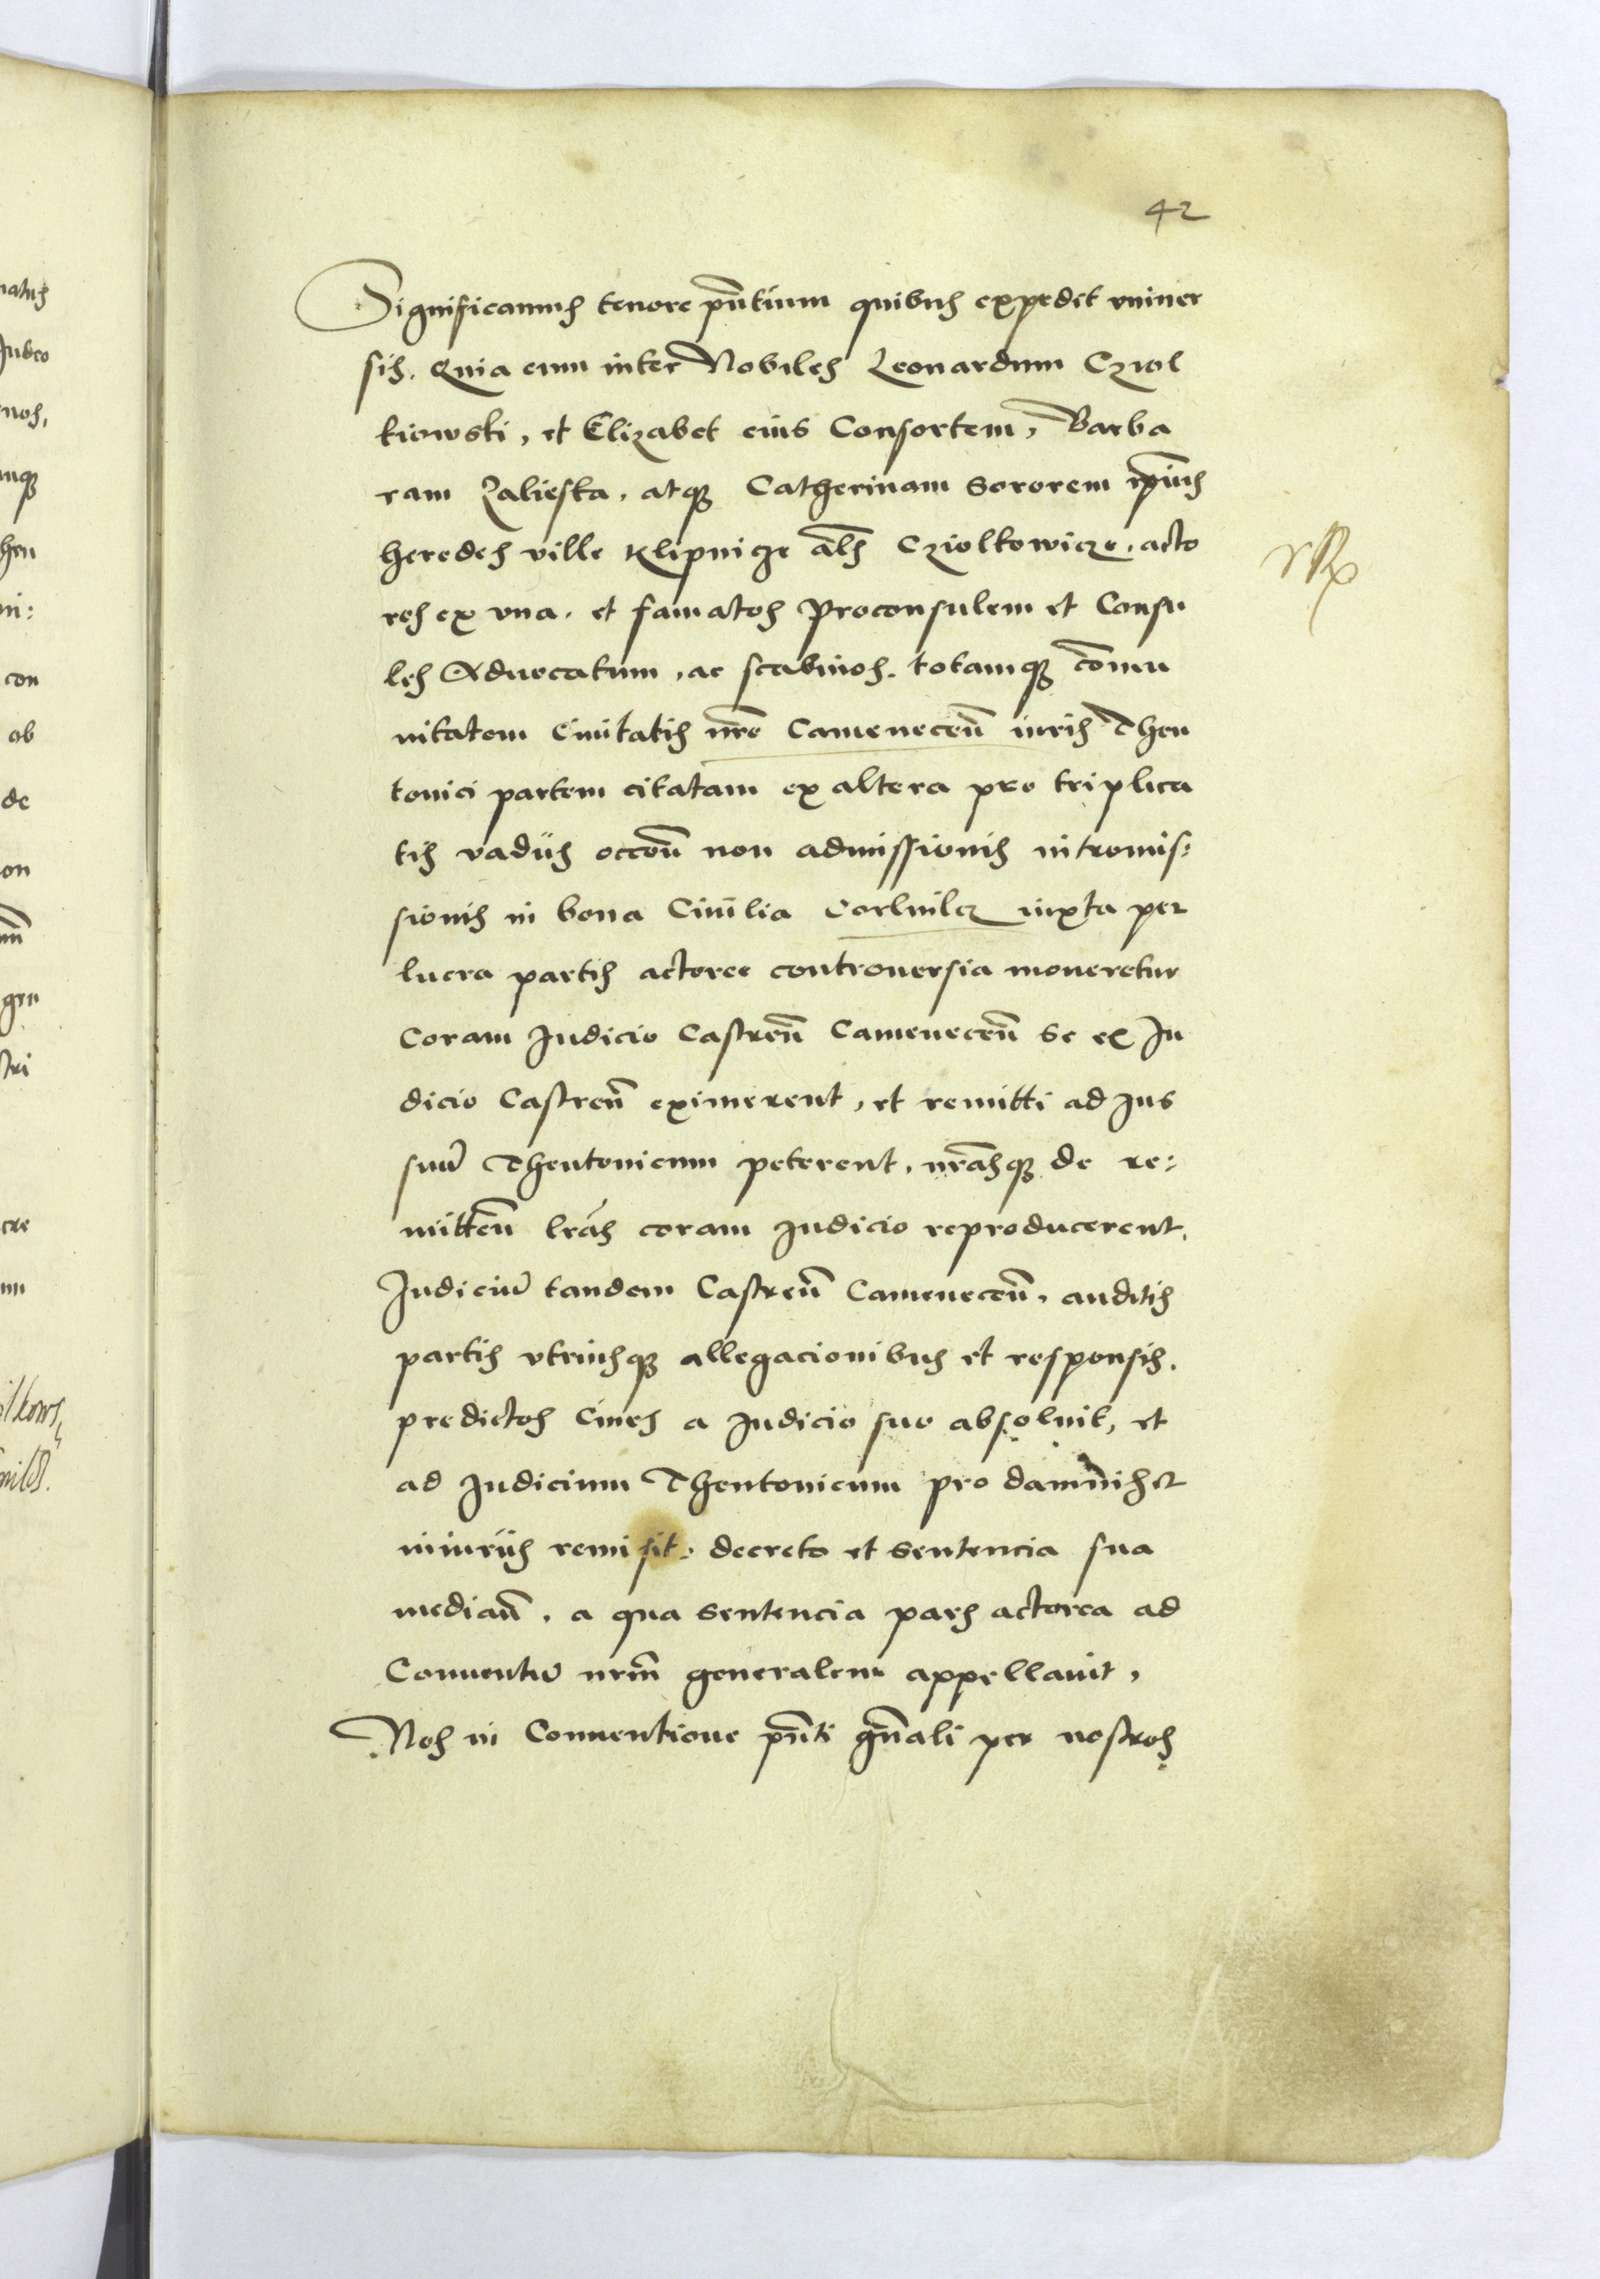 42
Significamus tenore pn̄tium quibus expedit vniuer
sis. Quia cum inter Nobiles Leonardum Cziol
kiowski, et Elizabet eius Consortem, Barba
ram Zalieska, atqꝫ Catherinam Sororem ip̄ius
heredes ville Klipnicze al̄s Cziolkowicze, acto
res ex vna. et famatos Proconsulem et Consu
les Aduocatum, ac scabinos. totamqꝫ com̄u
nitatem Ciuitatis nr̄e Camenecen̄ iuris Theu
tonici partem citatam ex altera pro triplica
tis vadiis occōn̄ non admissionis intromis:
sionis in bona Ciuilia iuxta per
lucra partis actoree controuersia moueretur
Coram Iudicio Castren̄ Camenecen̄ Se ex Iu
dicio Castren̄ eximerent, et remitti ad Jus
suū Theutonicum peterent, nr̄asqꝫ de re:
mitten̄ lr̄as coram Iudicio reproducerent.
Judiciū tandem Castren̄ Camenecen̄. auditis
partis vtriusqꝫ allegacionibus et responsis.
predictos Ciues a Iudicio suo absoluit, et
ad Iudicium Theutonicum pro damnis et
iniuriis remisit. decreto et Sentencia sua
median̄. a qua Sentencia pars actorea ad
Conuentū nrm̄ generalem appellauit,
Nos in Conuentione pn̄ti gn̄ali per nostros